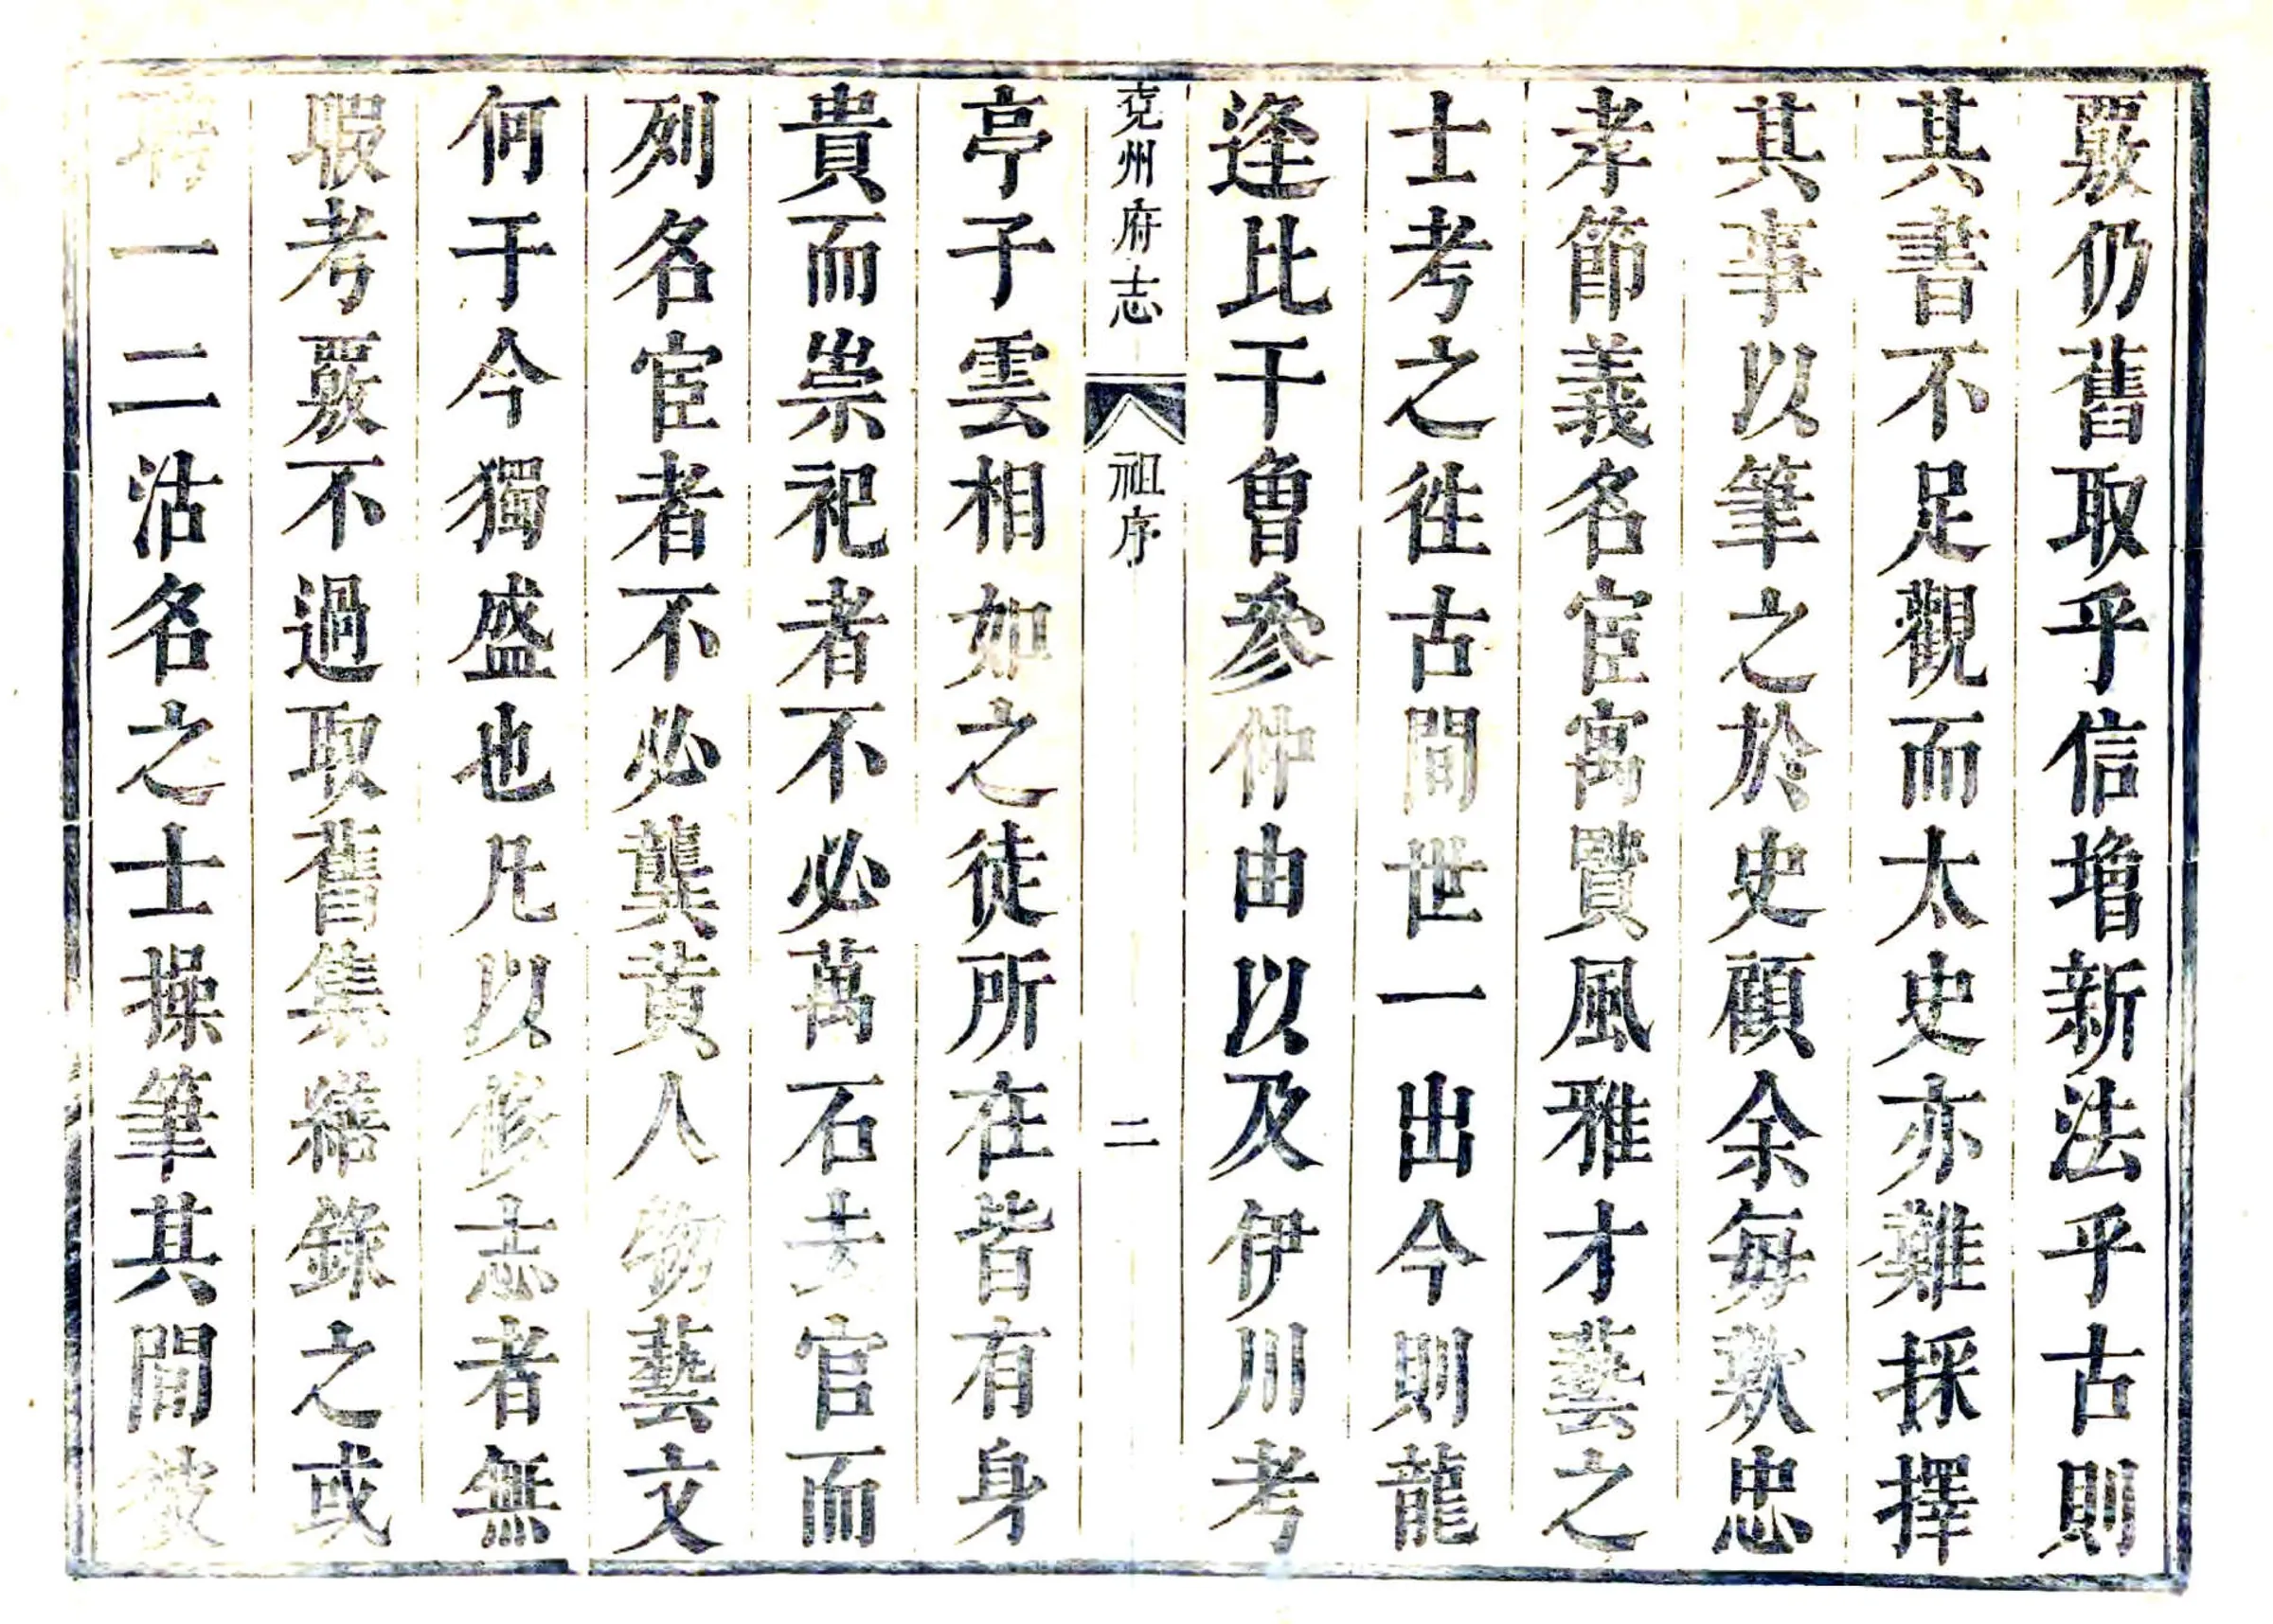 覈仍舊取乎信增新法乎古則
其書不足觀而太史亦難採擇
其事以筆之於史顧余每歎忠
孝節義名宦寓賢風雅才藝之
士考之徃古間世一出今則龍
逄比干曾參仲由以及伊川考
兗州府志
祖序
二
亭子雲相如之徒所在皆有身
貴而崇祀者不必萬石去官而
列名宦者不必龔黄人物藝文
何于今獨盛也凡以修志者無
暇考覈不過取舊集繕錄之或
聘一二沽名之士操筆其間彼